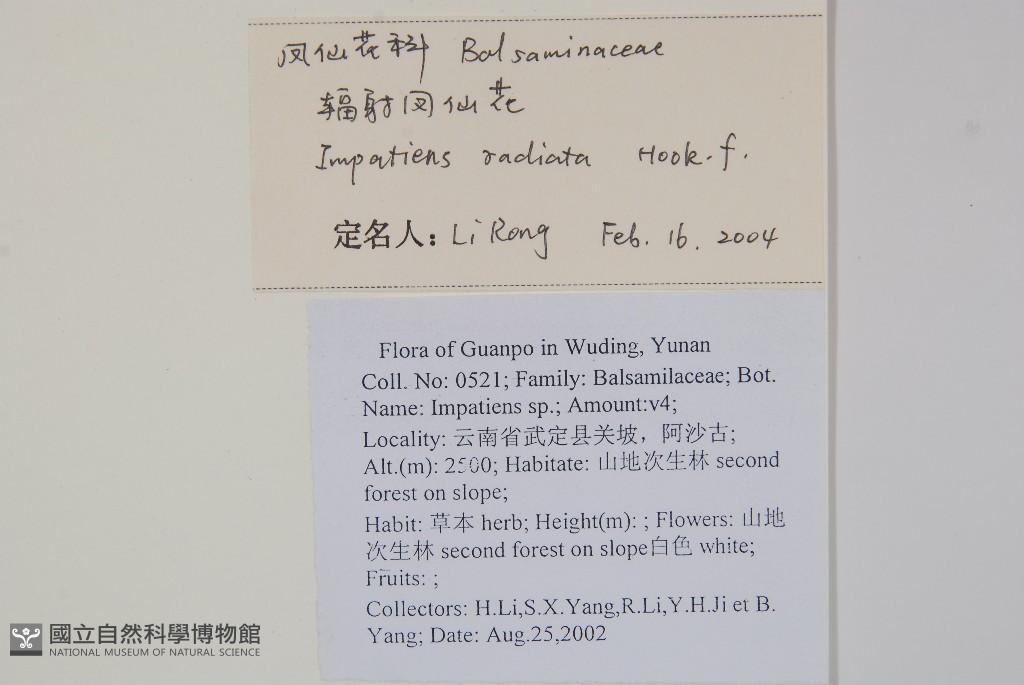 凤仙花科 Balsaminaceae
辐射凤仙花
Impatiens radiata Hook.f.
定名人: Li Rong Feb. 16. 2004
Flora of Guanpo in Wuding, Yunan
Coll. No: 0521; Family: Balsamilaceae; Bot.
Name: Impatiens sp.; Amount:v4;
Locality: 云南省武定县关坡，阿沙古;
Alt.(m): 2500; Habitate: 山地次生林 second
forest on slope;
Habit: 草本 herb; Height(m): ; Flowers: 山地
次生林 second forest on slope白色 white;
Fruits: ;
Collectors: H.Li,S.X.Yang,R.Li,Y.H.Ji et B.
Yang; Date: Aug.25,2002
國立自然科學博物館
NATIONAL MUSEUM OF NATURAL SCIENCE